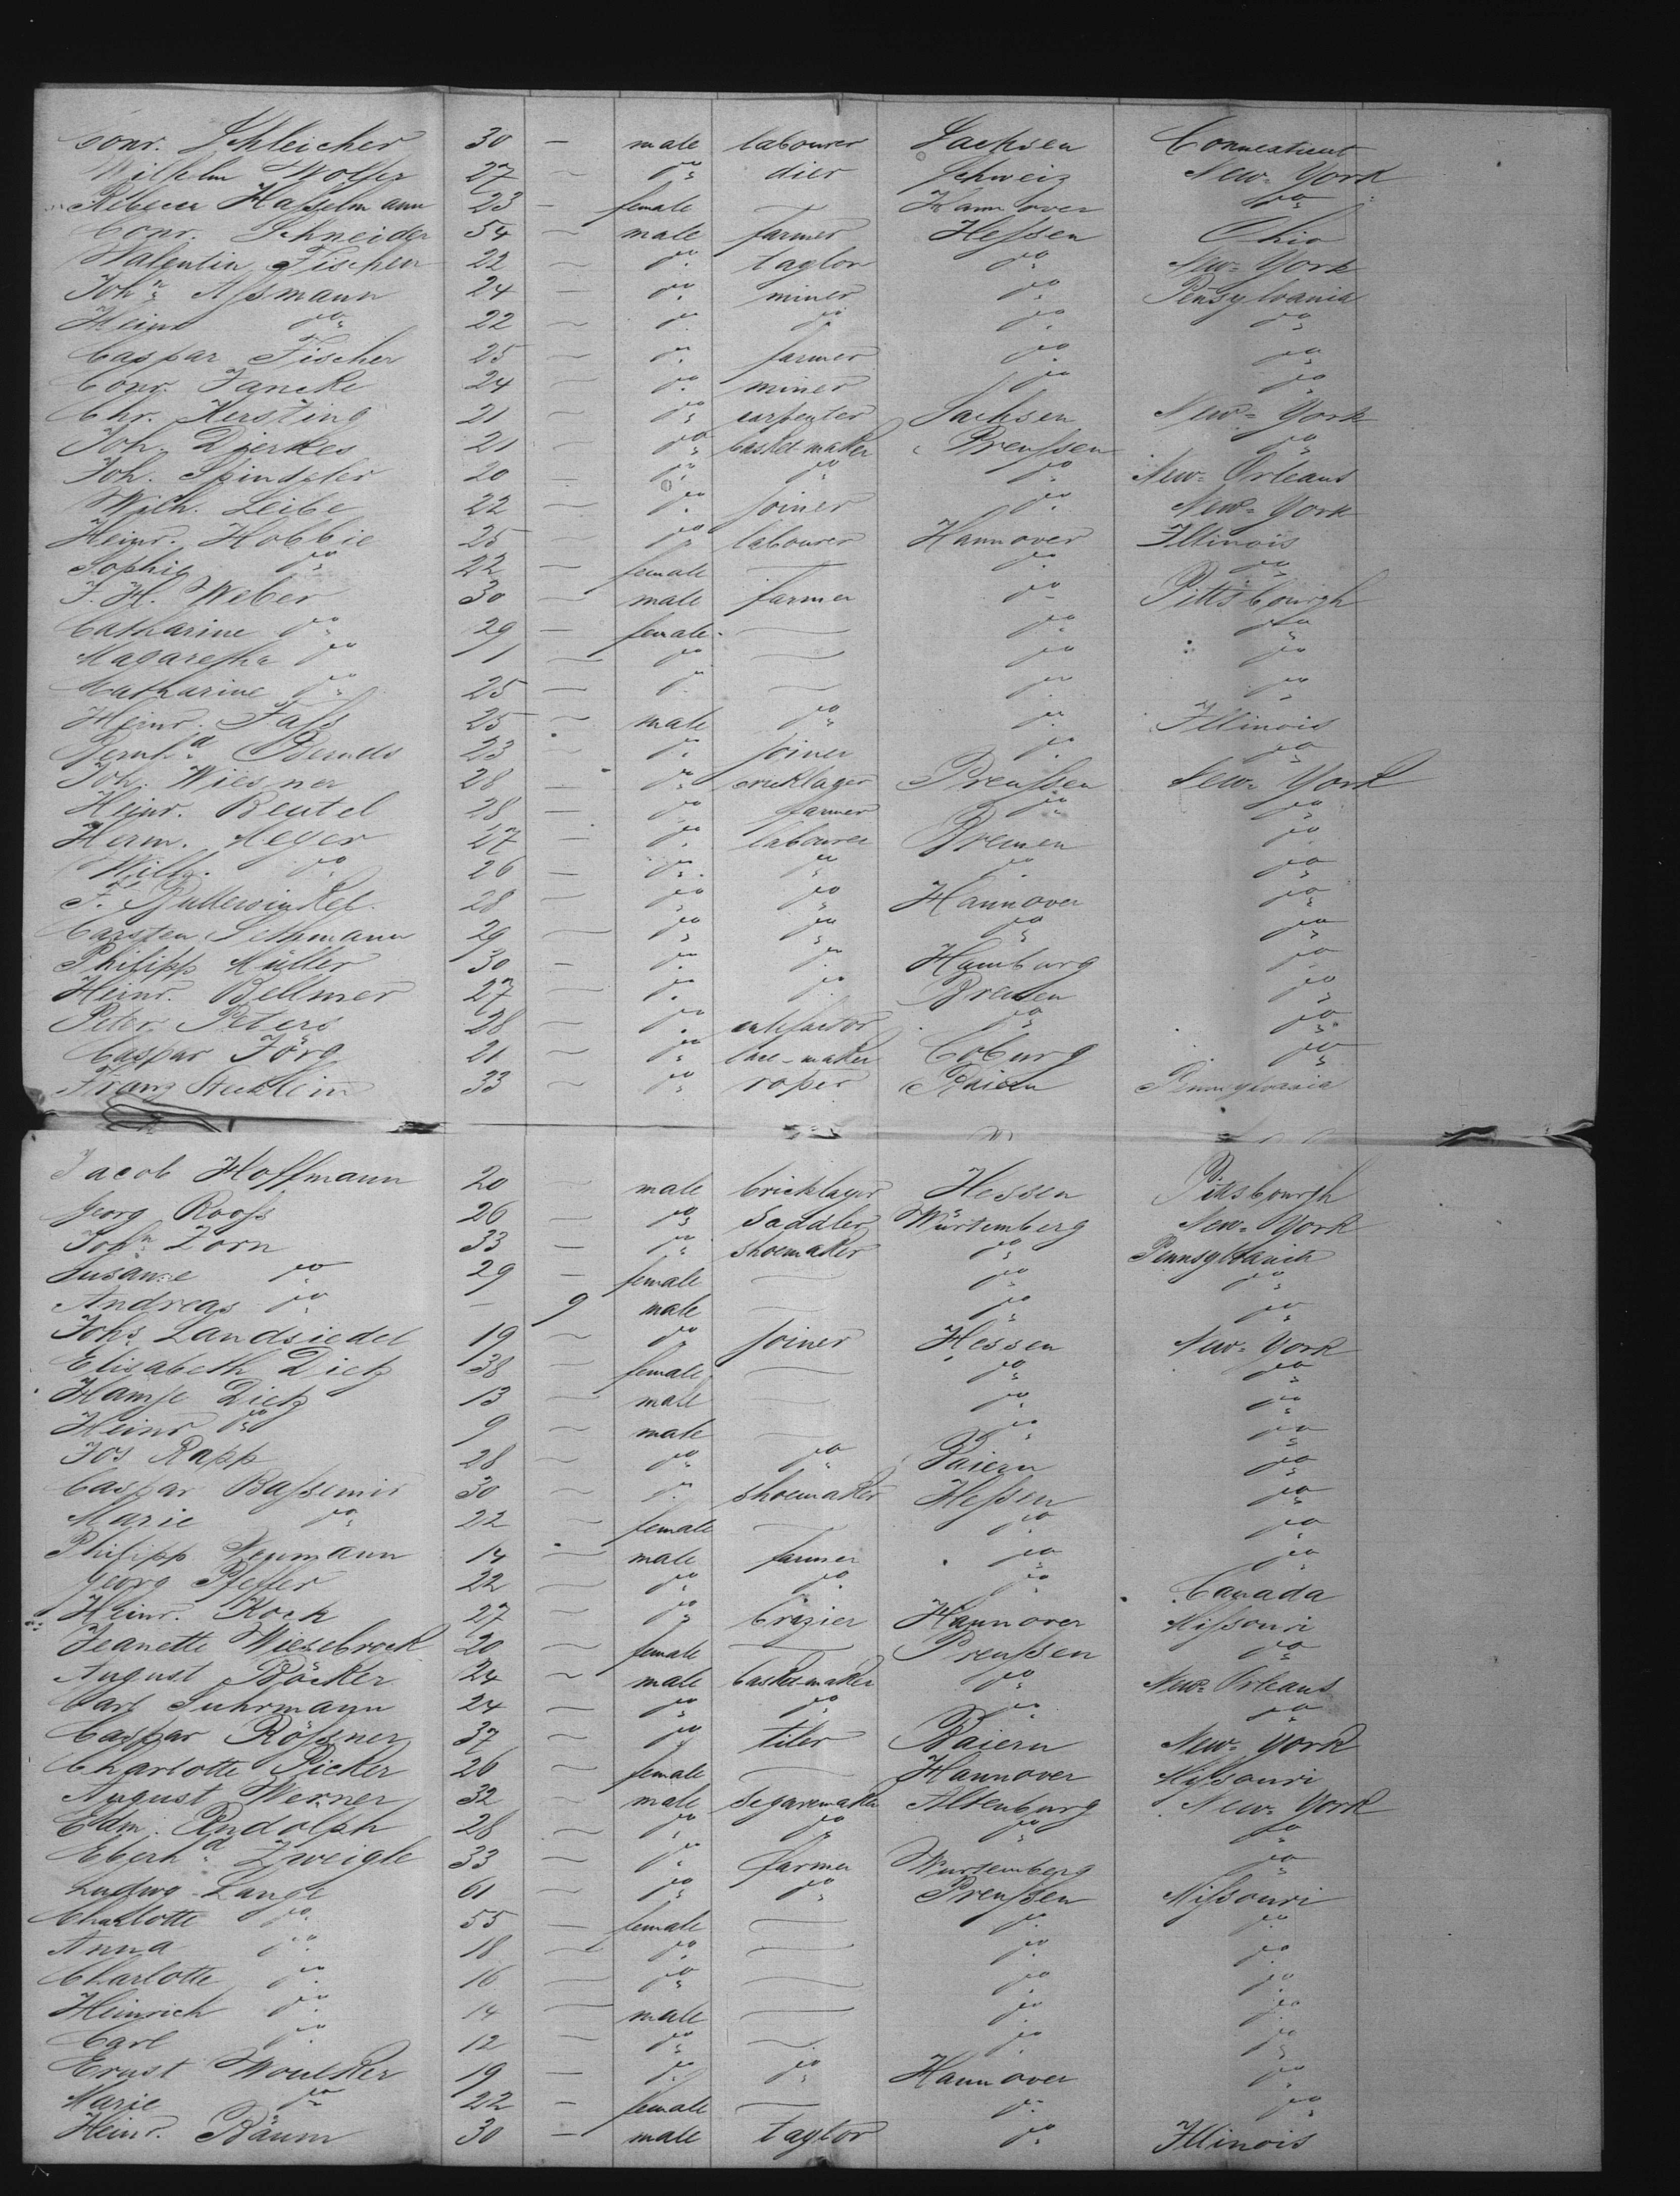 Conr. Schleicher 30 — male labourer Sachsen Connecticut
Wilhelm Wolfer 27 — do dier Schweiz New-York
Rebecca Haßelmann 23 — female — Hannover do
Conr. Schneider 54 — male farmer Heßen Ohio
Valentin Fischer 22 — do taylor do New-York
John Aßmann 24 — do miner do Pensylvania
Heinr do 22 — do do do do
Caspar Fischer 25 — do farmer do do
Conr. Jancke 24 — do miner do do
Chr. Kersting 21 — do carpenter Sachsen New-York
Joh. Dierkes 21 — do basket-maker Preußen do
Joh. Spindeler 20 — do do do New-Orleans
Wilh. Leibe 22 — do joiner do New-York
Heinr. Hobbie 25 — do labourer Hannover Illinois
Sophie do 22 — female — do do
J. H. Weber 30 — male farmer do Pittsbourgh
Catharine do 29 — female — do do
Magaretha do 1 — do — do do
Catharine do 25 — do — do do
Heinr. Fals 25 — male do do Illinois
Gernhd Bernds 23 — do joiner do do
Joh. Wiesner 28 — do bricklager Preußen New-York
Heinr. Beutel 28 — do farmer do do
Herm. Meyer 27 — do labourer Bremen do
Wilh. do 26 — do do do do
F. 28 — do do Hannover do
Carsten Sethmann 29 — do do do do
Philipp Müller 30 — do do Hamburg do
Heinr. Bellmer 27 — do do do
Peter Peters 28 — do do do
Caspar Jörg 21 — do lace-maker Coburg do
Franz Stecklein 33 — do roper Baiern Pennsylvania
Jacob Hoffmann 20 — male bricklager Hessen Pittsbourgh
Georg Rooß 26 — do Saddler Würtemberg New-York
John Zorn 33 — do shoemaker do Pennsylvania
Susanne do 29 — female — do do
Andreas do — 9 male — do do
Johs Landsiedel 19 — do joiner Hessen New-York
Elisabeth Dietz 38 — female — do do
Dietz 13 — male — do do
Heinr do 9 — male — do do
Jos Rapp 28 — do do Baiern do
Caspar Baßemir 30 — do shoemaker Heßen do
Marie do 22 — female — do do
Philipp Neumann 14 — male farmer do do
Georg Pfeffer 22 — do do do Canada
Heinr. Kock 27 — do brazier Hannover Mißouri
Jeanette Wiesebrock 20 — female — Preußen do
August Böcker 24 — male basket-maker do New-Orleans
Carl Suhrmann 24 — do do do do
Caspar Rößner 37 — do tiler Baiern New-York
Charlotte Picker 26 — female — Hannover Mißouri
August Werner 32 — male Segaremaker Altenburg New-York
Edm. Rudolph 28 — do do do do
Eberhd Zweigle 33 — do farmer Wurtemberg do
Ludwg Lange 61 — do do Preußen Mißouri
Charlotte do 55 — female — do do
Anna do 18 — do — do do
Charlotte do 16 — do — do do
Heinrich do 14 — male — do do
Carl do 12 — do — do do
Ernst Woelker 19 — do do Hannover do
Marie do 22 — female — do do
Heinr. Bäum 30 — male taylor do Illinois